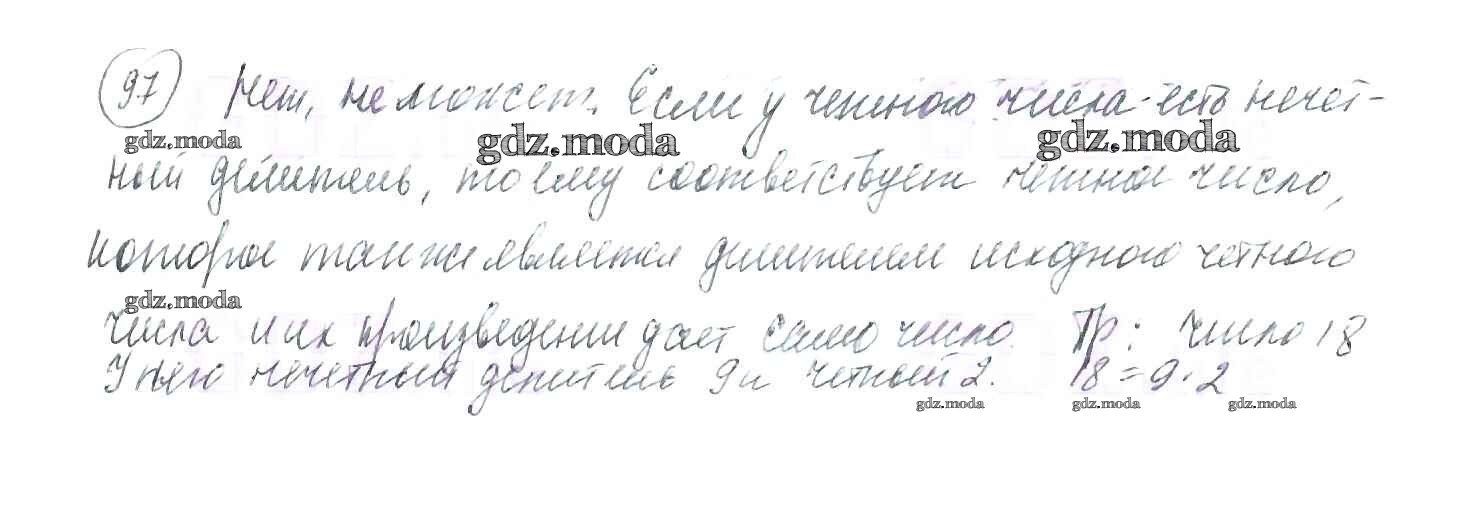 97 Нет, не может. Если у четного числа есть нечет-
gdz.moda gdz.moda gdz.moda
ный делитель, то ему соответствует четное число,
которое также является делителем исходного четного
gdz.moda
числа и их произведение дает само число. Пр: число 18
У него нечетный делитель 9 и четный 2. 18 = 9 · 2
gdz.moda gdz.moda gdz.moda